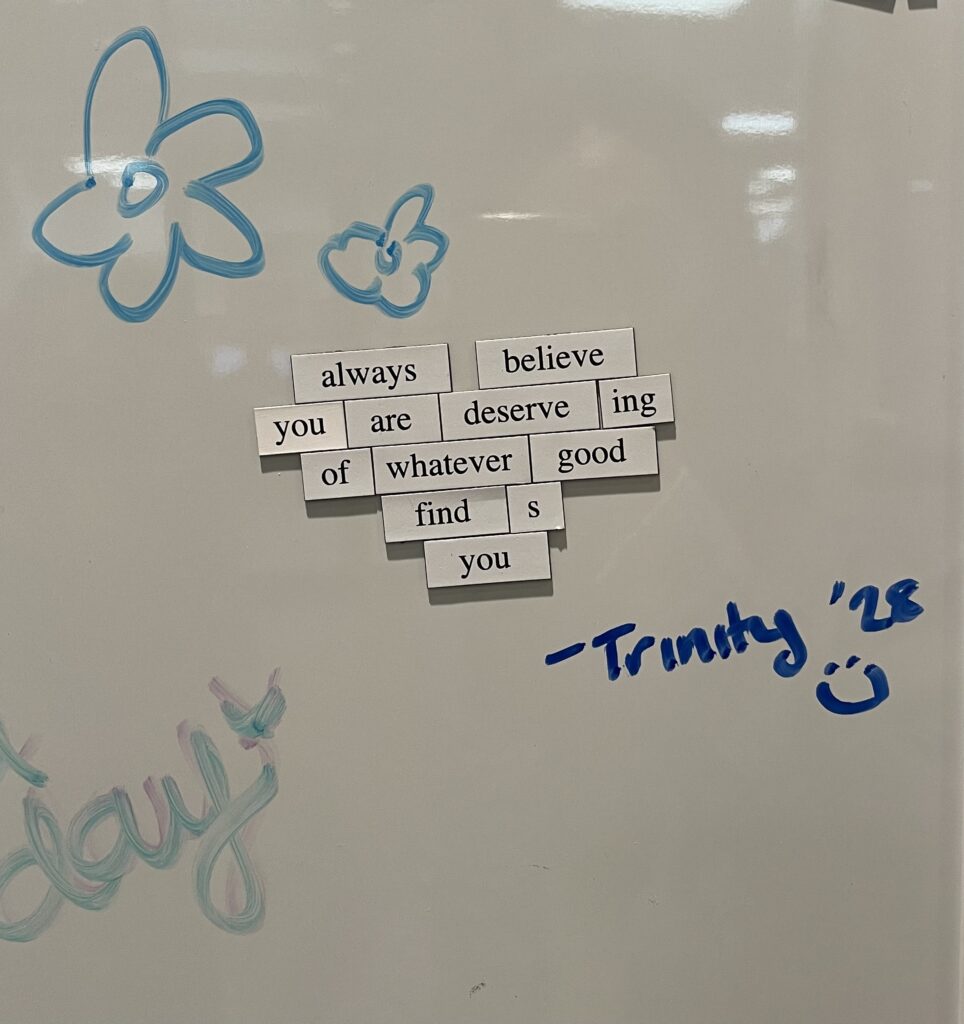 always believe
you are deserve ing
of whatever good
find s
you
-Trinity '28
day